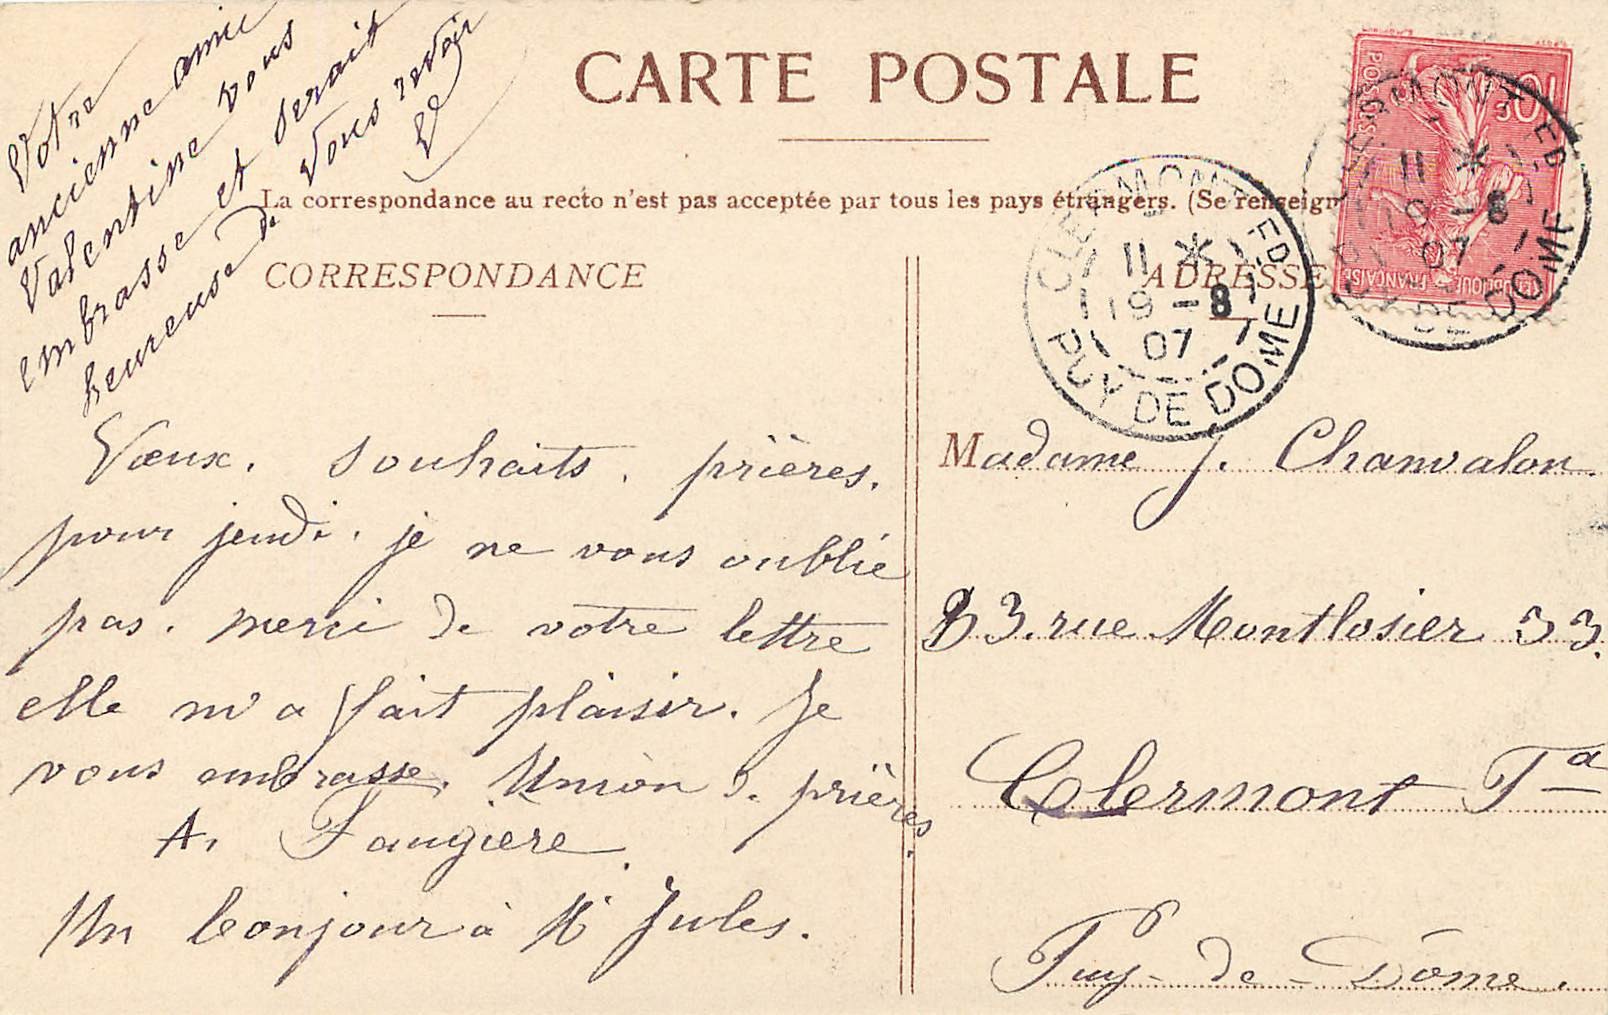 CARTE POSTALE
La correspondance au recto n'est pas acceptée par tous les pays étrangers. (Se renseign
CORRESPONDANCE
ADRESSE
Votre
ancienne amie
Valentine vous
embrasse et serait
heureuse de vous revoir
V
Vœux. souhaits. prières.
pour jeudi. je ne vous oublie
pas. merci de votre lettre
elle m'a fait plaisir. Je
vous embrasse. Union d. prières.
A. Faugiere.
Un bonjour à Mr Jules.
Madame J. Chanvalon
33. rue Montlosier 33.
Clermont Fd
Puy-de-Dôme.
CLERMONT FD
11 *
19 - 8
07
PUY DE DOME
CLERMONT FD
11 *
19 - 8
07
PUY DE DOME
POSTES
10c
REPUBLIQUE FRANÇAISE